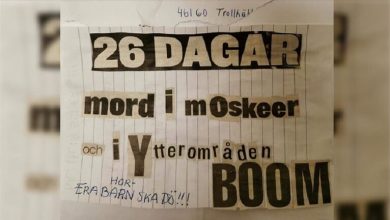 46160 Trollhät
26 DAGAR
mord i mOskeer
och i Ytterområden
HOR-
ERA BARN SKA DÖ!!!
BOOM